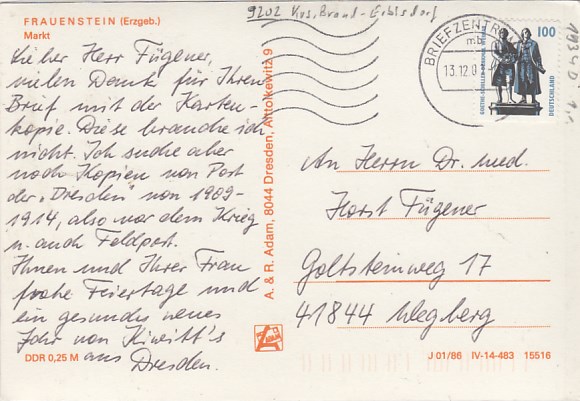 FRAUENSTEIN (Erzgeb.)
Markt
9202 Krs. Brand-Erbisdorf
Lieber Herr Fügener,
vielen Dank für Ihren
Brief mit der Karten-
kopie. Diese brauche ich
nicht. Ich suche aber
noch Kopien von Post
der „Dresden" von 1909-
1914, also vor dem Krieg
u. auch Feldpost.
Ihnen und Ihrer Frau
frohe Feiertage und
ein gesundes neues
Jahr von Kiwitt's
aus Dresden.
DDR 0,25 M
A. & R. Adam, 8044 Dresden, Altolkewitz 9
BRIEFZENTRUM
mb
13.12.0
100
DEUTSCHLAND
An Herrn Dr. med.
Horst Fügener
Goltsteinweg 17
41844 Wegberg
J 01/86 IV-14-483 15516